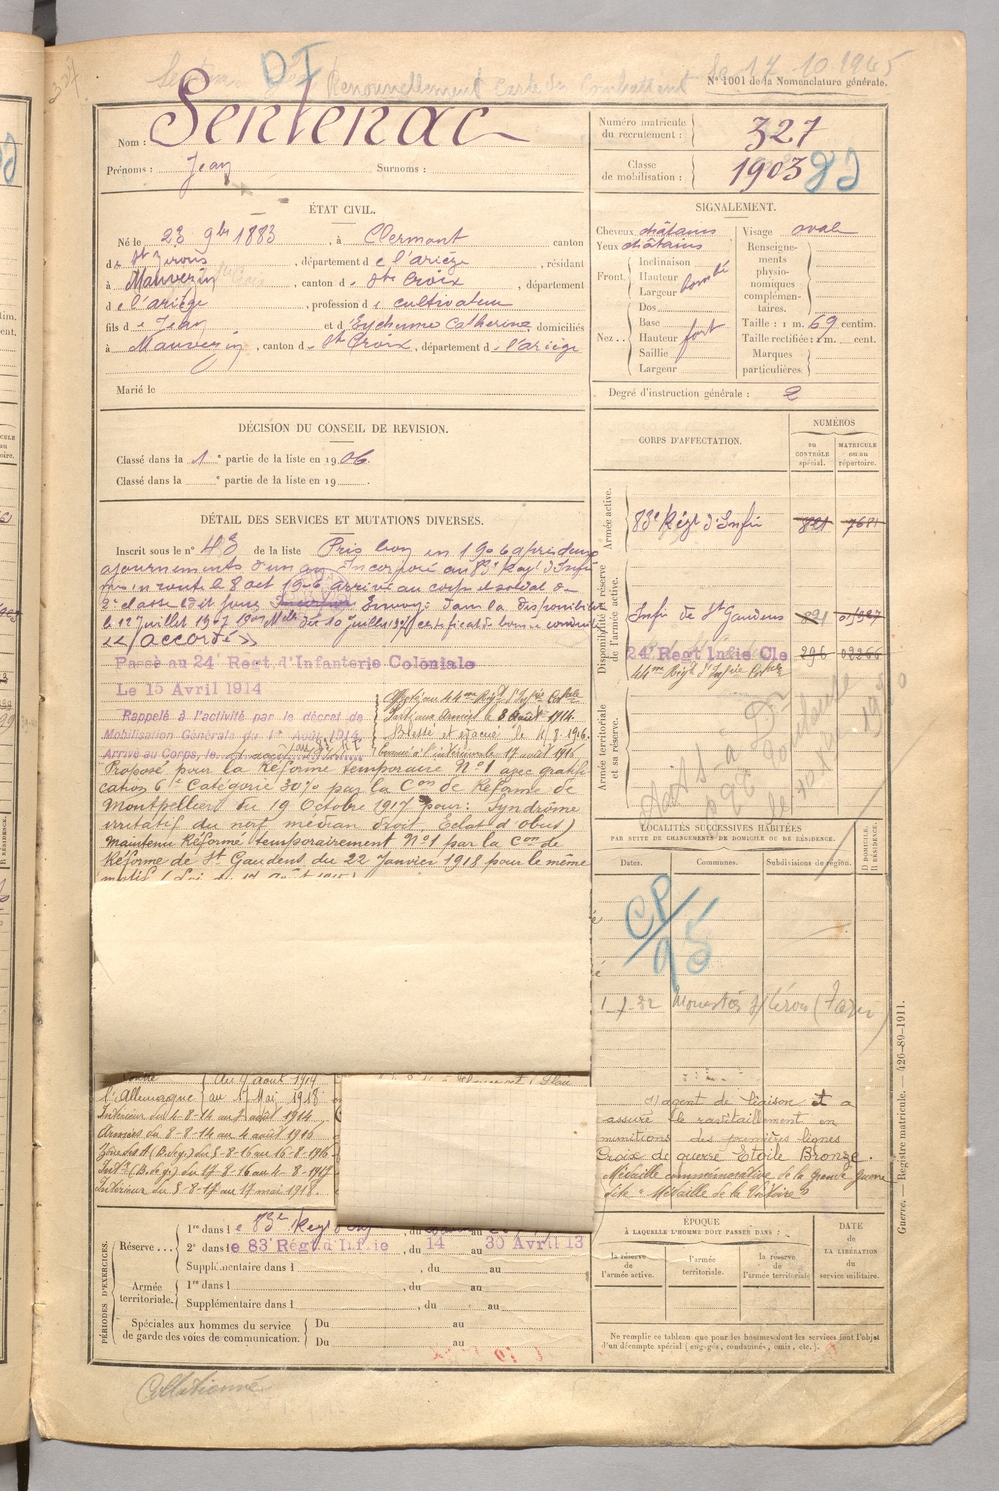 327
DJ
Renouvellement carte du Combattant le 17.10.1945
N° 1001 de la Nomenclature générale.
Nom : Sentenac
Prénoms : Jean Surnoms :
Numéro matricule du recrutement : 327
Classe de mobilisation : 1903
ÉTAT CIVIL.
Né le 23 9bre 1883, à Clermont canton
de St Girons, département de l'ariège, résidant
à Mauvezin, canton de Ste Croix, département
de l'ariège, profession de cultivateur
fils de Jean et d'Eychenne Catherine, domiciliés
à Mauvezin, canton de Ste Croix, département de l'ariège
Marié le
SIGNALEMENT.
Cheveux châtains Visage oval
Yeux châtains
Front. Inclinaison
Hauteur bombé
Largeur
Nez. Dos
Base
Hauteur fort
Saillie
Largeur
Renseignements physionomiques complémentaires.
Taille : 1 m. 69 centim.
Taille rectifiée : 1 m. cent.
Marques particulières.
Degré d'instruction générale : 2
DÉCISION DU CONSEIL DE REVISION.
Classé dans la 1e partie de la liste en 1906.
Classé dans la e partie de la liste en 19
DÉTAIL DES SERVICES ET MUTATIONS DIVERSES.
Inscrit sous le n° 43 de la liste Pris bon en 1906 après deux
ajournements d'un an Incorporé au 83e Regt d'Infie
mis en route le 8 oct 1906 arrivé au corps et soldat de
2e classe ledit jour Envoyé dans la disponibilité
le 12 juillet 1907 certificat de bonne conduite
<<accordé>>
Passé au 24e Regt. d'Infanterie Coloniale
Le 15 Avril 1914
Rappelé à l'activité par le décret de
Mobilisation Générale du 1er Août 1914.
Arrivé au Corps, le
Affecté au 44me Régt d'Infie Colle
Parti aux Armées le 8 Août 1914.
Blessé et évacué le 4/8.1916.
à l'intérieur le 17 août 1916
Proposé pour la Réforme temporaire N°1 avec gratifi
cation 6e Catégorie 30% par la Con de Réforme de
Montpellier du 19 Octobre 1917 pour: Syndrôme
irritatif du nerf médian droit. Eclat d'obus)
Maintenu Réformé temporairement N°1 par la Con de
Réforme de St Gaudens du 22 Janvier 1918 pour le même
motif
l'Allemagne du 4 août 1914
au 17 Mai 1918
Intérieur du 4-8-14 au 7 août 1914
Armées du 8-8-14 au 4 août 1916
du 5-8-16 au 16-8-1916
du 17-8-16 au 4-8-1917
Intérieur du 5-8-17 au 17 mai 1918.
CORPS D'AFFECTATION.
NUMÉROS
AU CONTRÔLE spécial.
MATRICULE ou au répertoire.
Armée active.
83e Régt d'Infie 821 7681
Disponibilité et réserve de l'armée active.
Infie de St Gaudens 891 01987
24e Regt Infie Cle 296 02266
44me Régt d'Infie Colle
Armée territoriale et sa réserve.
LOCALITÉS SUCCESSIVES HABITÉES
PAR SUITE DE CHANGEMENTS DE DOMICILE OU DE RÉSIDENCE.
Dates. Communes. Subdivisions de région. D DOMICILE. R RÉSIDENCE.
CP/95
1-7-32 Monestiés s/ Cérou (Tarn)
d'agent de liaison et a
assuré le ravitaillement en
munitions des premières lignes
Croix de guerre Etoile Bronze.
Médaille commémorative de la Grande Guerre
dite "Médaille de la Victoire"
PÉRIODES D'EXERCICES.
Réserve... 1re dans le 83e Regt d'Infie, du au
2e dans le 83e Régt d'Infie, du 14 au 30 Avril 13
Supplémentaire dans l , du au
Armée territoriale. 1re dans l , du au
Supplémentaire dans l , du au
Spéciales aux hommes du service de garde des voies de communication. Du au
Du au
ÉPOQUE
À LAQUELLE L'HOMME DOIT PASSER DANS :
la réserve de l'armée active.
l'armée territoriale.
la réserve de l'armée territoriale
DATE de LA LIBÉRATION du service militaire.
Ne remplir ce tableau que pour les hommes dont les services font l'objet
d'un décompte spécial (engagés, condamnés, omis, etc.).
Guerre. — Registre matricule. — 426-89-1911.
Collationné